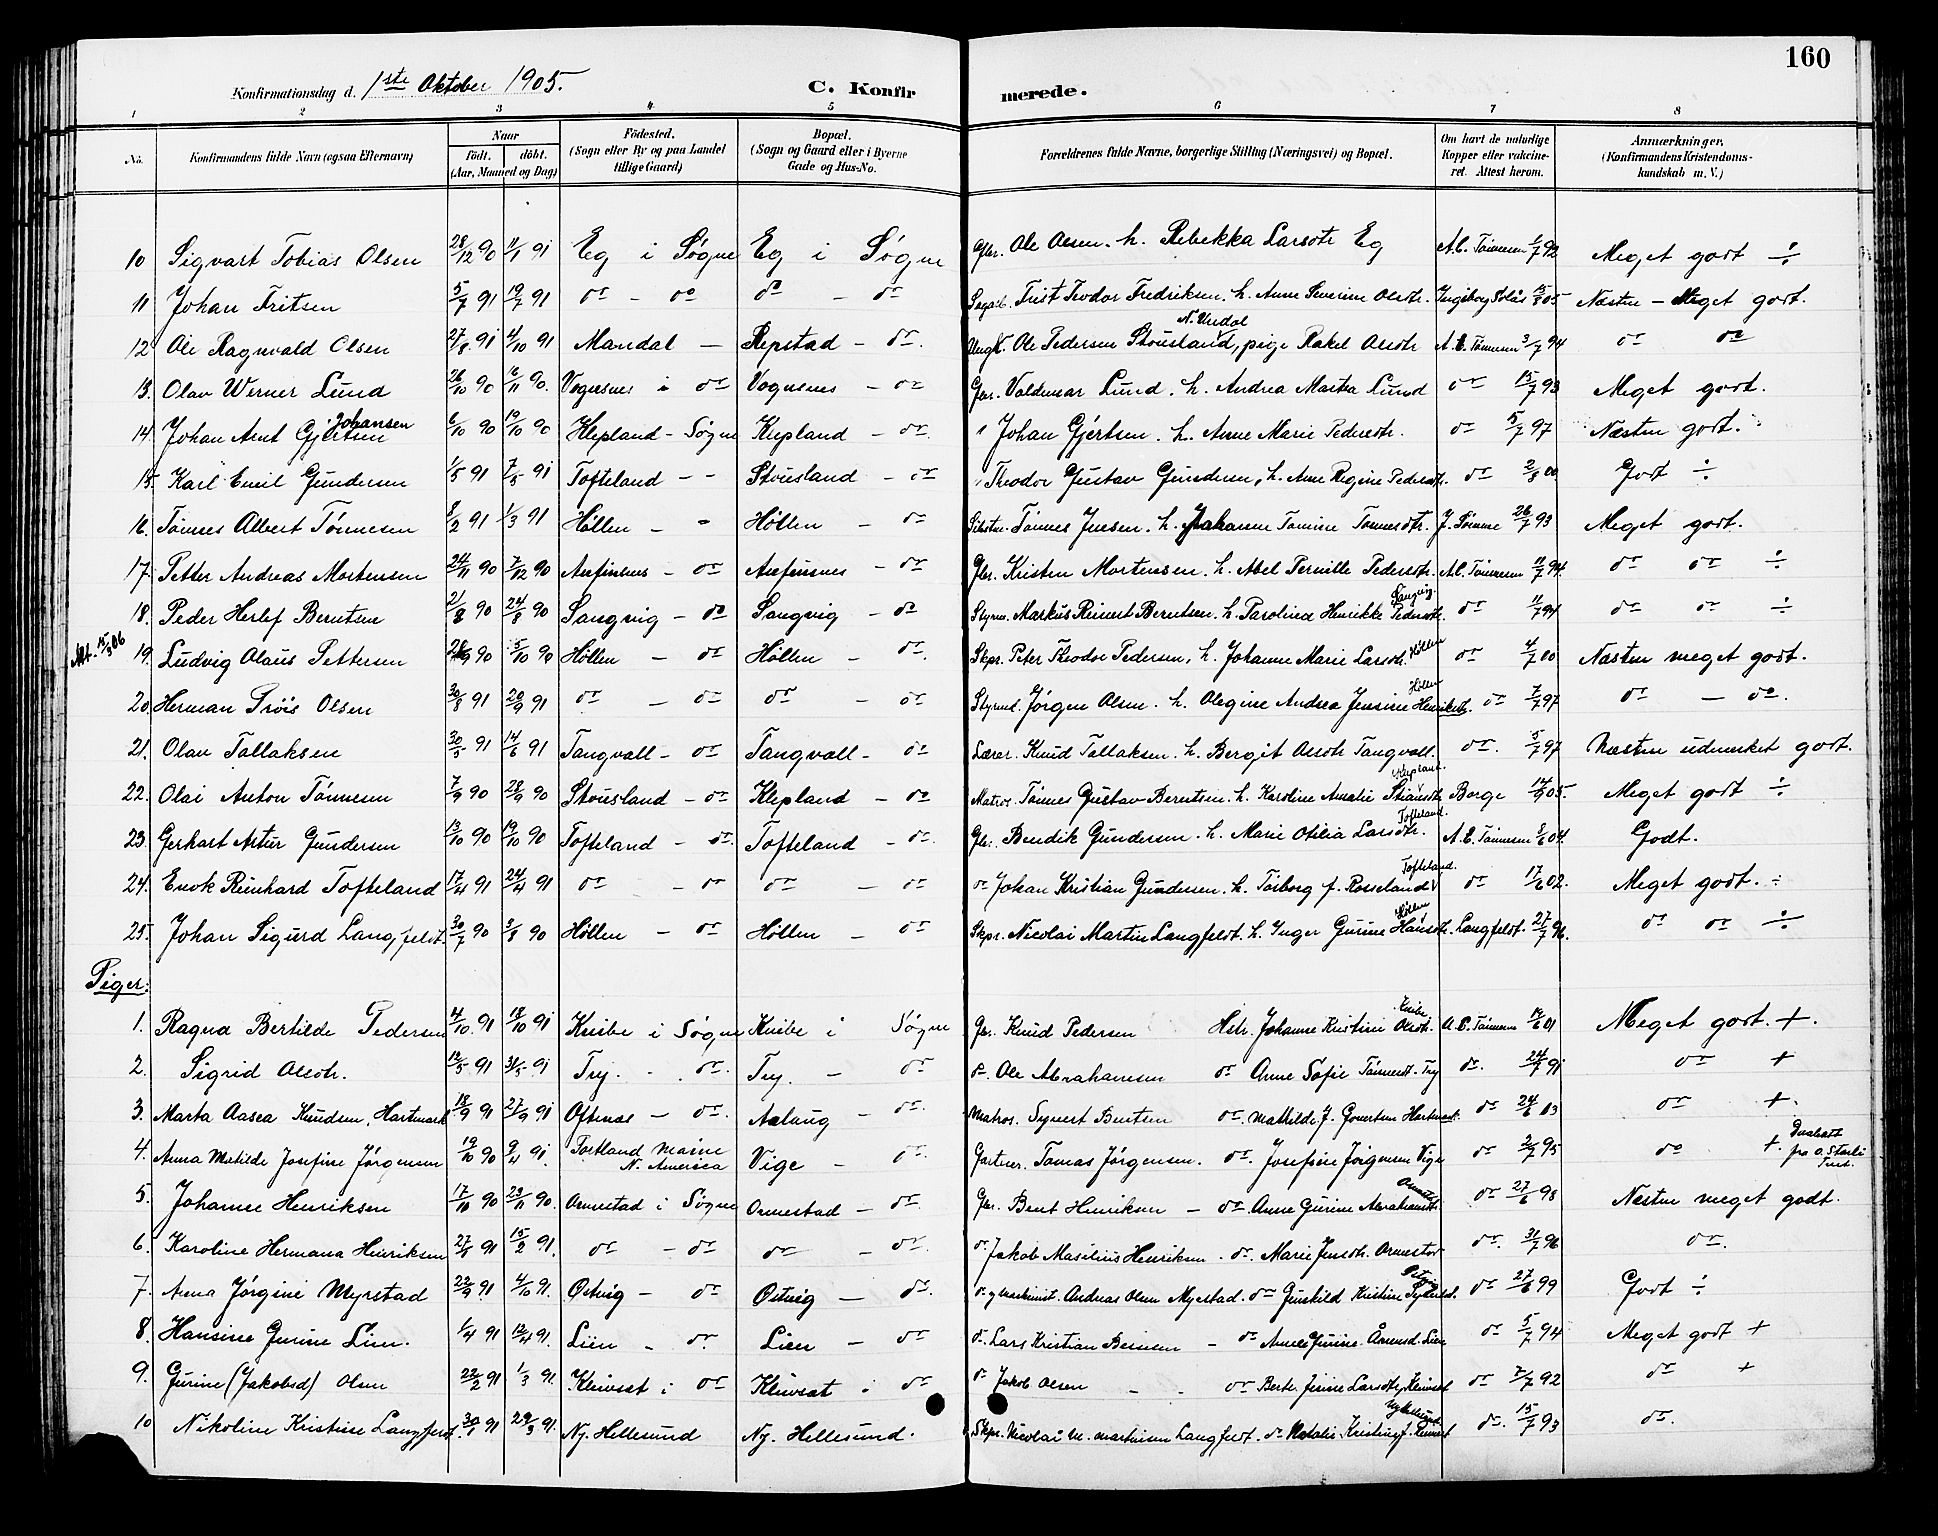 160
Konfirmationsdag d. 1ste Oktober 1905. C. Konfirmerede.
1 2 3 4 5 6 7 8
No. Konfirmandens fulde Navn (ogsaa Efternavn) Naar födt. döbt. (Aar, Maaned og Dag) Födested. (Sogn eller By og paa Landet tillige Gaard) Bopæl. (Sogn og Gaard eller i Byerne Gade og Hus-No. Forældrenes fulde Navne, borgerlige Stilling (Næringsvei) og Bopæl. Om havt de naturlige Kopper eller vakcineret. Attest herom. Anmærkninger. (Konfirmandens Kristendomskundskab m. V.)
10 Sigvart Tobias Olsen 28/12 90 11/1 91 Eg i Søgne Eg i Søgne Gbr. Ole Olsen. h. Rebekka Larsdtr Eg A.C. Tönnesen 1/7 92 Meget godt ÷
11 Johan Fritsen 5/7 91 19/7 91 do - do do - do Teodor Fredriksen. h. Anne Severine Olsdtr. Ingeborg Solås 15/8 05 Næsten - Meget godt.
12 Ole Ragnvald Olsen 27/8 91 4/10 91 Mandal - Repstad - do. Ungk. Ole Pedersen Stousland, pige Rakel Olsdtr A.C. Tönnesen 3/7 94 do do
13. Olav Werner Lund 26/10 90 16/11 90. Vognsnes i do Vognsnes - do Gbr. Valdemar Lund. h. Andrea Marta Lund do 15/7 93 Meget godt.
14. Johan Arnt Gjertsen Johansen 6/10 90 19/10 90 Klepland - Søgne Klepland - do. " Johan Gjertsen. h. Anne Marie Pedersdtr. do 5/7 97 Næsten godt.
15. Karl Emil Gundersen 1/5 91 7/5 91 Tofteland - - Stousland - do " Theodor Gustav Gundersen, h. Anne Regine Pedersdtr. do 2/8 00 Godt ÷
16. Tönnes Albert Tönnesen 8/2 91 1/3 91 Höllen - " Höllen - do Tönnes Jensen. h. Johanne Tomine Tönnesdtr. J. Sømme 26/7 93 Meget godt.
17. Petter Andreas Mortensen 24/11 90 7/12 90 Aufinsnes - do Aufinsnes - do Gbr. Kristen Mortensen. h. Abel Pernille Pedersdtr. A.C. Tönnesen 11/7 94. do do ÷
18. Peder Herlef Berntsen 2/8 90 24/8 90 Sangvig - do Sangvig - do Styrm. Markus Reinert Berntsen. h. Parolina Henrikke Pedersdtr. Sangvig do 11/7 94 do do ÷
Att. 15/3 06
19. Ludvig Olaus Pettersen 9 90 5/10 90 Höllen - do Höllen - do. Skpr. Peter Theodor Pedersen, h. Johanne Marie Larsdtr. Höllen do 4/7 00 Næsten meget godt.
20. Herman Tröis Olsen 30/8 91 20/9 91 do - do do - do Styrmd. Jørgen Olsen. h. Olegine Andrea Jensine Henriksdt. Höllen do 7/7 97 do - do.
21. Olav Tallaksen 30/5 91 14/6 91 Tangvall - do Tangvall - do Lærer. Knud Tallaksen. h. Bergit Olsdtr Tangvall. do. 5/7 97 Næsten udmerket godt.
22. Olai Anton Tönnesen 7/9 90 28/9 90 Stousland - do Klepland - do Matros. Tönnes Gustav Berntsen. h. Karoline Amalie Stiansdtr Klepland. Borge 14/9 05. Meget godt ÷
23. Gerhart Artur Gundersen 13/10 90 19/10 90 Tofteland - do. Tofteland - do. Gbr. Bendik Gundersen. h. Marie Otilia Larsdtr. Tofteland. A.C. Tönnesen 8/6 04. Godt.
24. Enok Reinhard Tofteland 17/4 91 24/4 91 do - do do - do do Johan Kristian Gundersen. h. Torborg f. Rosseland Tofteland. do 17/6 02. Meget godt. ÷
25. Johan Sigurd Langfeldt. 30/7 90 3/8 90 Höllen - do Höllen - do Skpr. Nicolai Martin Langfeldt. h. Inger Gurine Hansdtr. Höllen Langfeldt. 27/7 96. do do ÷
Piger:
1. Ragna Bertilde Pedersen 4/10. 91 18/10 91 Knibe i Søgne Knibe i Søgne Gbr. Knud Pedersen Hstr. Johanne Kristine Olsdtr. Knibe A.C. Tönnesen 14/6 01 Meget godt. +.
2. Sigrid Olsdtr. 13/5 91 31/5 91 Try. - do. Try. - do do. Ole Abrahamsen do Anne Sofie Tönnesdt. Try do. 24/7 91 do +
3. Marta Aasea Knudsen, Hartmark 18/9 91 27/9 91 Oftenes - do. Aalaug - do. Matros. Syvert Bentsen do. Mathilde J. Govertsen Hartmark. do 24/6 03 do +.
4. Anna Matilde Josefine Jörgensen 19/10 90 9/4 91. Portland Maine N. America Vige - do. Gartner. Tomas Jörgensen. do. Josefine Jörgensen Vige do 2/7 95 do +
5. Johanne Henriksen 17/10 90 23/11 90. Ormestad i Søgne Ormestad - do. Gbr. Bent Henriksen - do. Anne Gurine Abrahamsdtr. do 27/6 98 Næsten meget godt.
6. Karoline Hermana Henriksen 27/1 91 15/2 91. do - do do - do. do. Jakob Masilius Henriksen. do. Marie Jensdtr. Ormestad do. 31/7 96 do.
7. Anna Jörgine Myrstad 22/9 91 4/10 91. Østvig - do Østvig - do. Andreas Olsen Myrstad. do Gunhild Kristine do 27/6 99 Godt ÷
8. Hansine Gurine Lien. 1/4 91 12/4 91. Lien - do. Lien - do do. Lars Kristian - do Anne Gurine. Lien do 5/7 94 Meget godt +
9. Gurine (Jakobsd) Olsen 22/2 91 1/3 91. Kleivset i do Kleivset i do do Jakob Olsen - - do Berte Jesine Larsdtr, Kleivset do 7/7 92 do +
10 Nikoline Kristine Langfeldt. 30/1 91 29/3 91. Ny. Hellesund Ny. Hellesund. Skpr. Nicolai M. Martinsen Langfeldt. do Natalie Kristine do. 15/7 93 do.